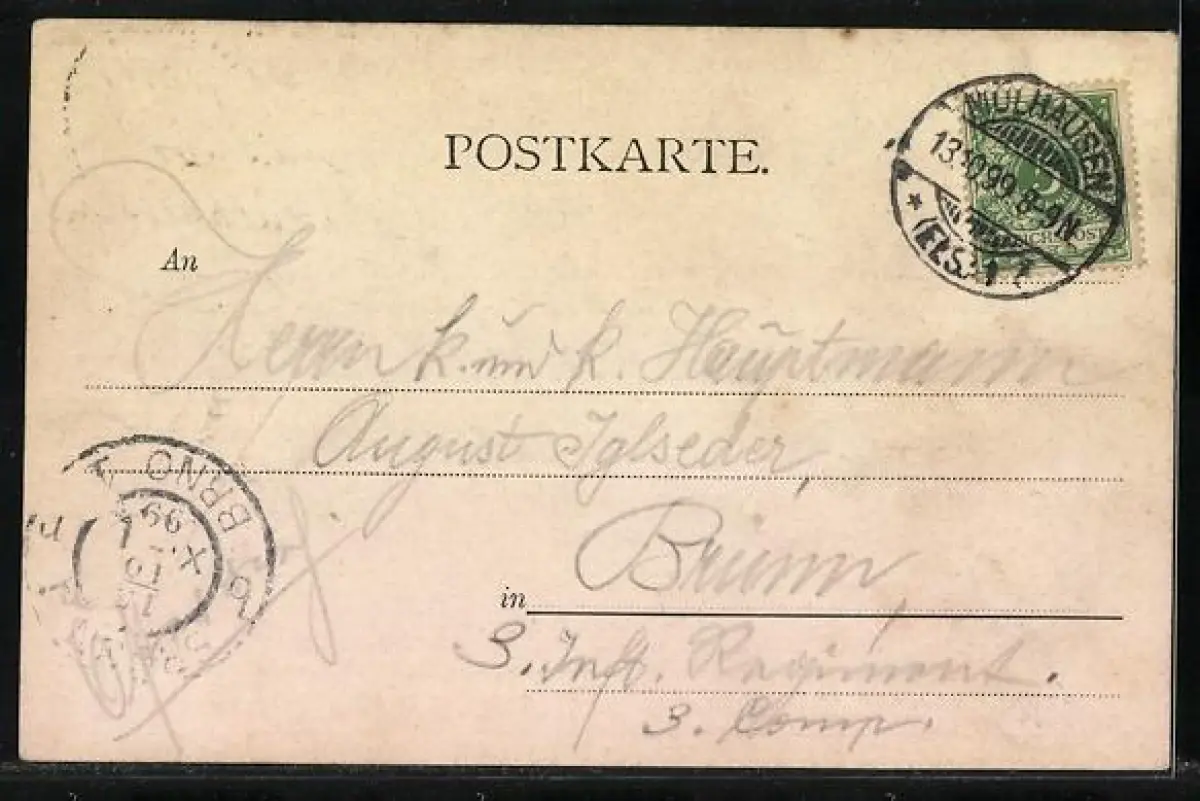 POSTKARTE.
MÜLHAUSEN
13.10.99. 8-9N.
(ELS.) 1
REICHSPOST
An
Herrn k. und k. Hauptmann
August Iglseder,
in Brünn,
3. Inft. Regiment.
3. Comp.
BRNO
99